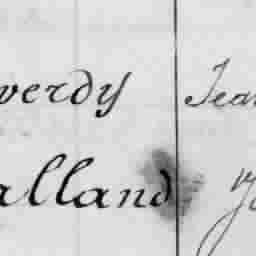 verdy Jean
alland